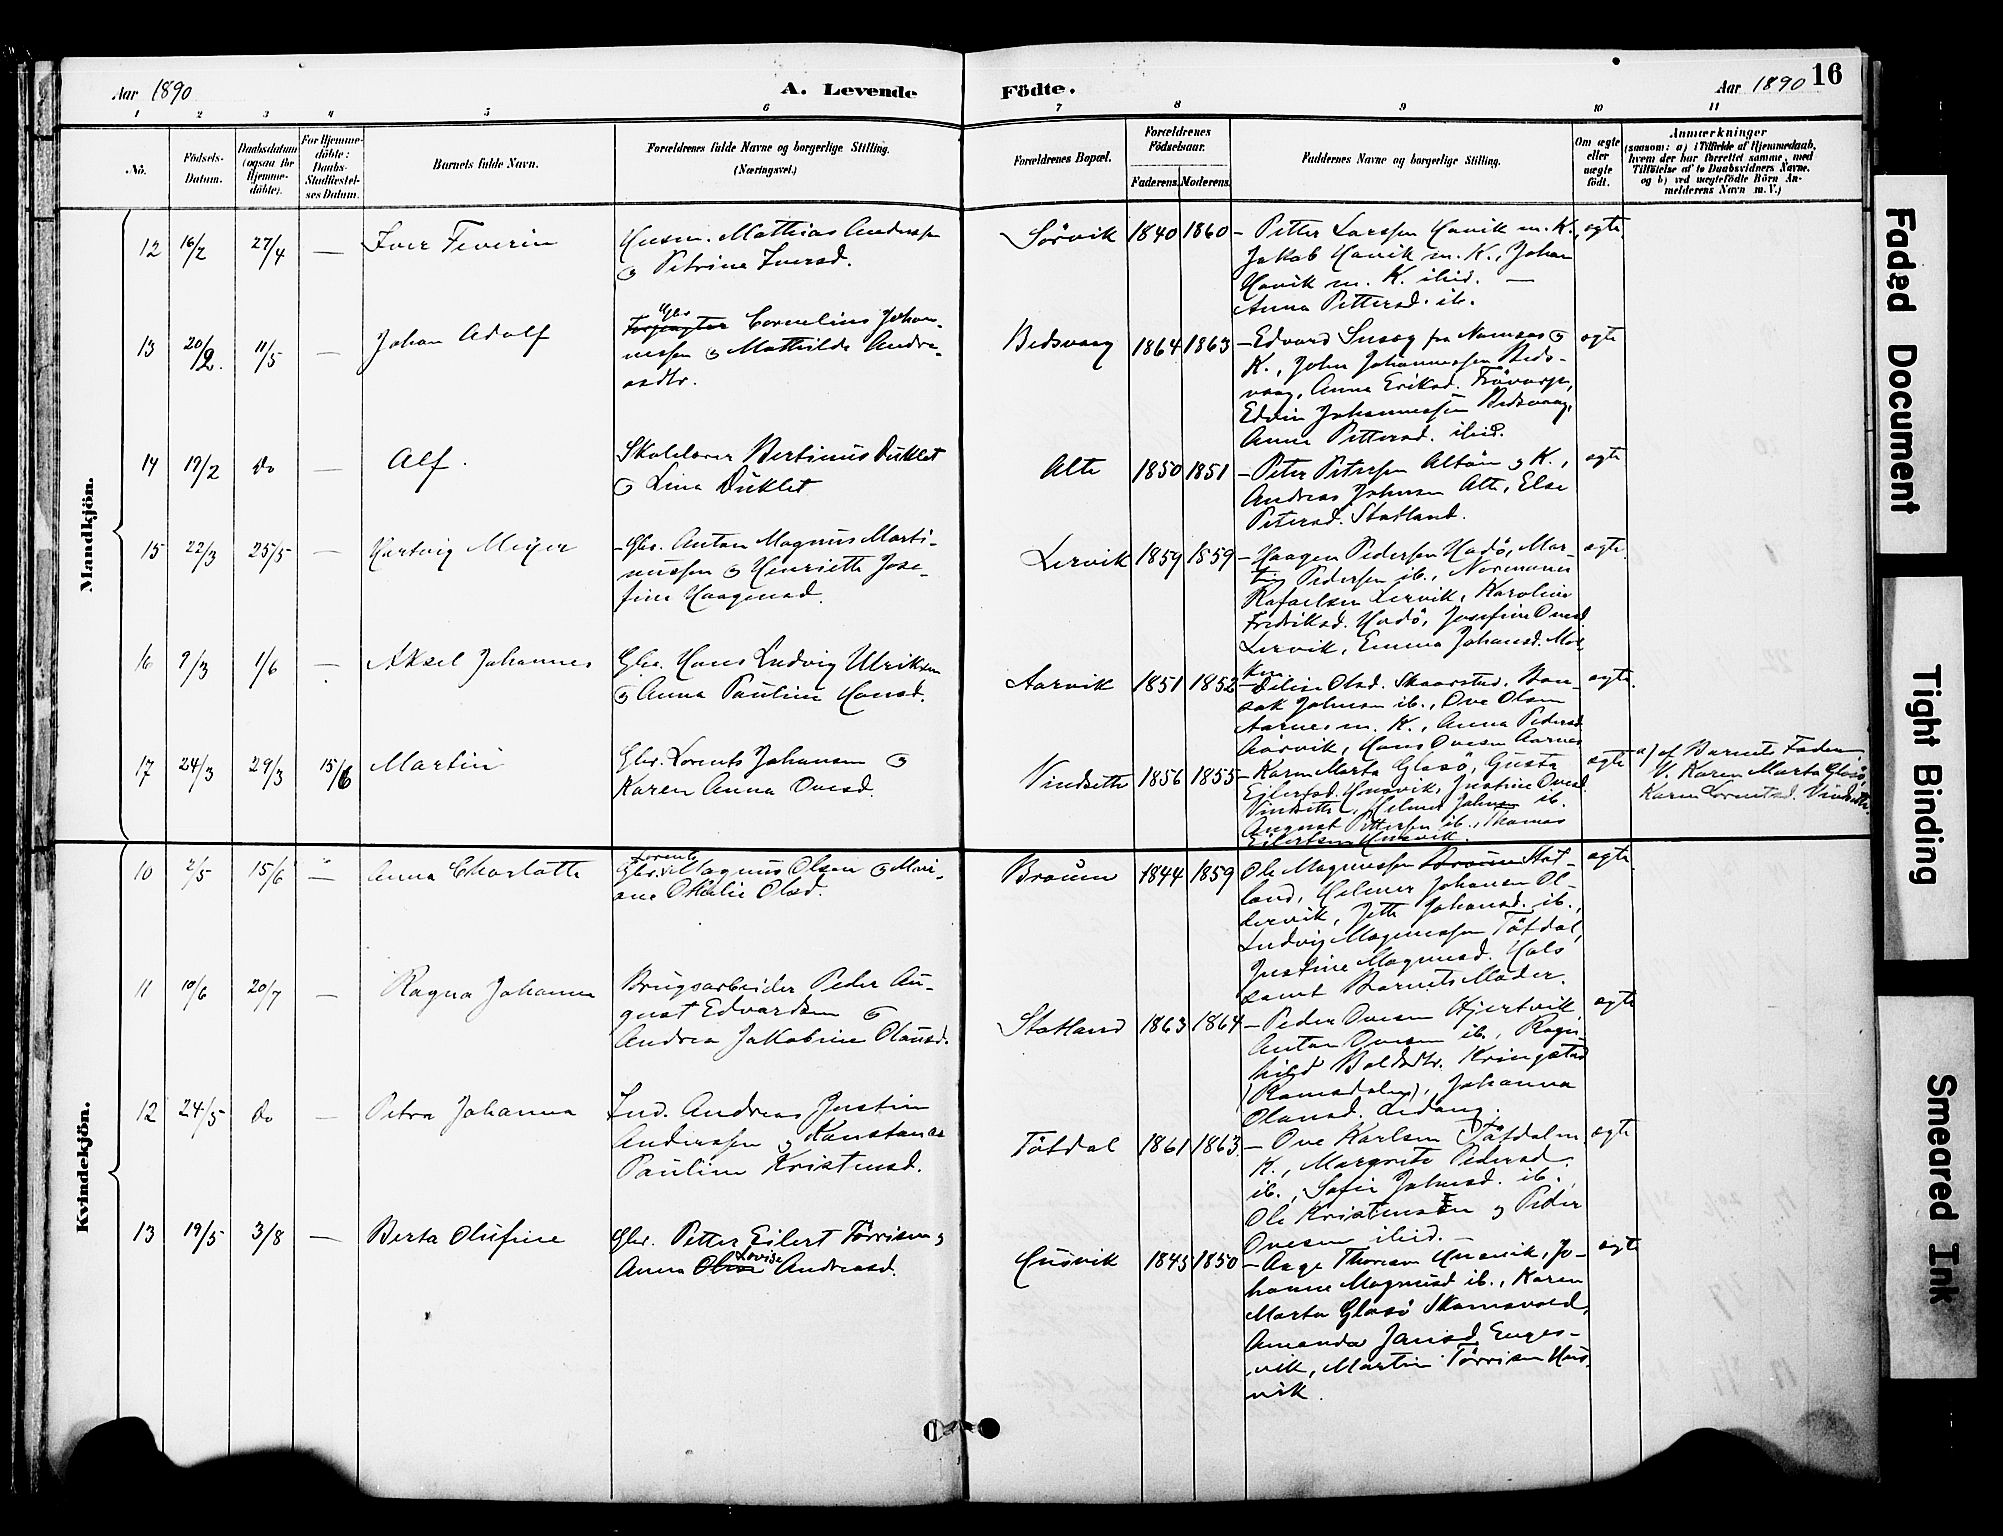 Aar 1890
A. Levende
Födte.
Aar 1890
16
1 2 3 4 5 6 7 8 9 10 11
No.
Födsels-
Datum.
Daabsdatum
(ogsaa for
Hjemme-
döbte).
For Hjemme-
döbte:
Daabs-
Stadfæstel-
ses Datum.
Barnets fulde Navn.
Forældrenes fulde Navne og borgerlige Stilling.
(Næringsvei.)
Forældrenes Bopæl.
Forældrenes
Födselsaar.
Faderens. Moderens.
Faddernes Navne og borgerlige Stilling.
Om ægte
eller
uægte
födt.
Anmærkninger
(saasom: a) i Tilfælde af Hjemmedaab,
hvem der har forrettet samme, med
Tilföielse af to Daabsvidners Navne.
og b) ved uægtefödte Börn An-
melderens Navn m. V.)
Mandkjön.
12 16/2 27/4 — Iver Severin
Husm. Mathias Anderssen
og Petrine Iversd.
Sörvik 1840 1860
— Petter Larssen Havik m. K.,
Jakob Havik m. K., Johan
Havik m. K. ibid. —
Anna Pettersd. ib.
ægte
13 20/2. 11/5 — Johan Adolf
Gbr
Cornelius Johan-
nessen og Mathilde Andre-
asdtr.
Bedsvaag 1864 1863
— Edvard Snaag fra Namsos og
K., John Johannessen Beds-
vaag, Anna Eriksd.
Edvin Johannessen Bedsvaag,
Anne Pettersd. ibid.
ægte
14 19/2 do — Alf.
Skolelærer Bertinus Duklet
og Lina Duklet
Alte 1850 1851
— Peter Petersen Altöen og K.,
Andreas Johnsen Alte, Else
Petersd. Statland.
ægte
15 22/3 25/5 — Hartvig Meyer
Gbr. Anton Magnus Marti-
nussen og Henriette Jose-
fine Haagensd.
Lervik 1859 1859
— Haagen Pedersen Hadö, Mar-
tin Pedersen ib., Normann
Rafaelsen Lervik, Karoline
Fredriksd. Hadö, Josefine Ovesd.
Lervik, Emma Johansd. Mos-
ægte
16 9/3 1/6 — Aksel Johannes
Gbr. Hans Ludvig Ulriksen
og Anna Pauline Hansd.
Aarvik 1851 1852
— Olsd. Skaarstad,
Johnsen ib., Ove Olsen
Aarnes m. K., Anna Pedersd.
Aarvik, Hans Ovesen Aarnes
ægte
17 24/3 29/3 15/6 Martin
Gbr. Lorents Johansen og
Karen Anna Ovesd.
Vindseth 1856 1855
— Karen Marta Glasö, Gusta
Eilertsd. Husvik, Justine Ovesd.
Vindseth, Helmer Johnsen ib.
August Pettersen ib., Thomas
Eilertsen Husvik.
ægte
a) af Barnets Fader.
V. Karen Marta Glasö,
Karen Lorentsd. Vindseth.
Kvindekjön.
10 2/5 15/6 — Anna Charlotte
Lorents
Gbr. Magnus Olsen og Mari-
ane Othilie Olsd.
Braaen 1844 1859
Ole Magnussen Braaen Stat-
land, Helmer Johansen Ol-
lervik, Jette Johansd. ib.,
Ludvig Magnussen Tötdal,
Justine Magnusd. Hals
samt Barnets Moder.
ægte
11 10/6 20/7 — Ragna Johanna
Brugsarbeider Peder Au-
gust Edvardsen og
Andrea Jakobine Olausd.
Statland 1863 1864
— Peder Ovesen Hjertvik,
Anton Ovesen ib., Ragn-
hild Kringstad
(Romsdalen), Johanna
Olausd. Lidang.
ægte
12 24/5 do — Petra Johanna
Ind. Andreas Justin
Anderssen og Konstanse
Pauline Kristensd.
Tötdal 1861 1863
— Ove Karlsen Tötdal m.
K., Margrete Pedersd.
ib., Sofie Johnsd. ib.,
Ole Kristensen og Peder
Ovesen ibid. —
ægte
13 19/5 3/8 — Berta Olufine
Gbr. Petter Eilert Törrisen og
Lovise
Anna Oline Andreasd.
Husvik 1845 1850
— Aage Thoresen Husvik, Jo-
hanne Magnusd ib., Karen
Marta Glasö Skamsvold,
Amanda Jansd. Enges-
vik, Martin Törrisen Hus-
vik.
ægte
Faded Document
Tight Binding
Smeared Ink